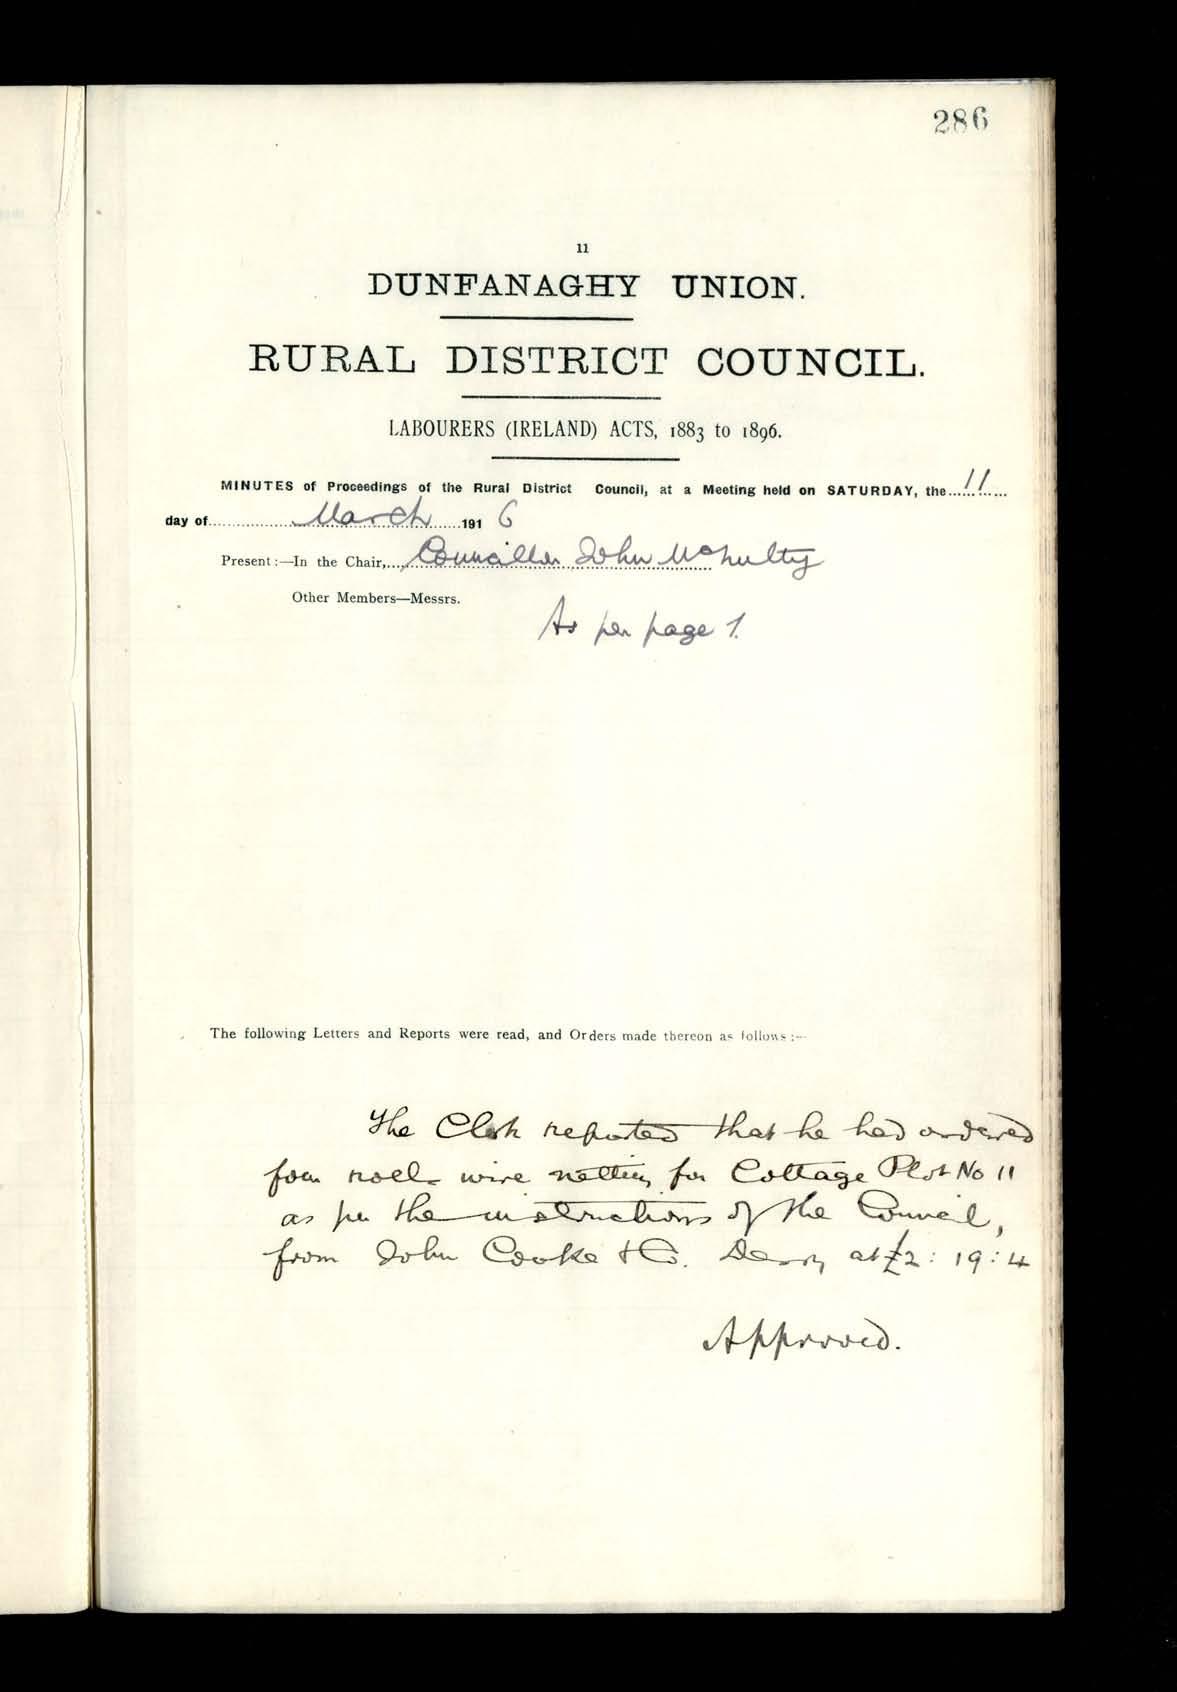 286
11
DUNFANAGHY UNION.
RURAL DISTRICT COUNCIL.
LABOURERS (IRELAND) ACTS, 1883 to 1896.
MINUTES of Proceedings of the Rural District Council, at a Meeting held on SATURDAY, the......11......
day of..................March......191 6
Present:—In the Chair,....Councillor John McNulty
Other Members—Messrs.
As per page 1.
The following Letters and Reports were read, and Orders made thereon as follows:—
The Clerk reported that he had ordered
four rolls wire netting for Cottage Plot No 11
as per the instructions of the Council,
from John Cooke & Co. Derry at £2:19:4
Approved.